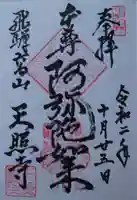 奉拝
令和二年
十月廿五日
本尊
阿弥陀如来
飛騨高山
天照寺